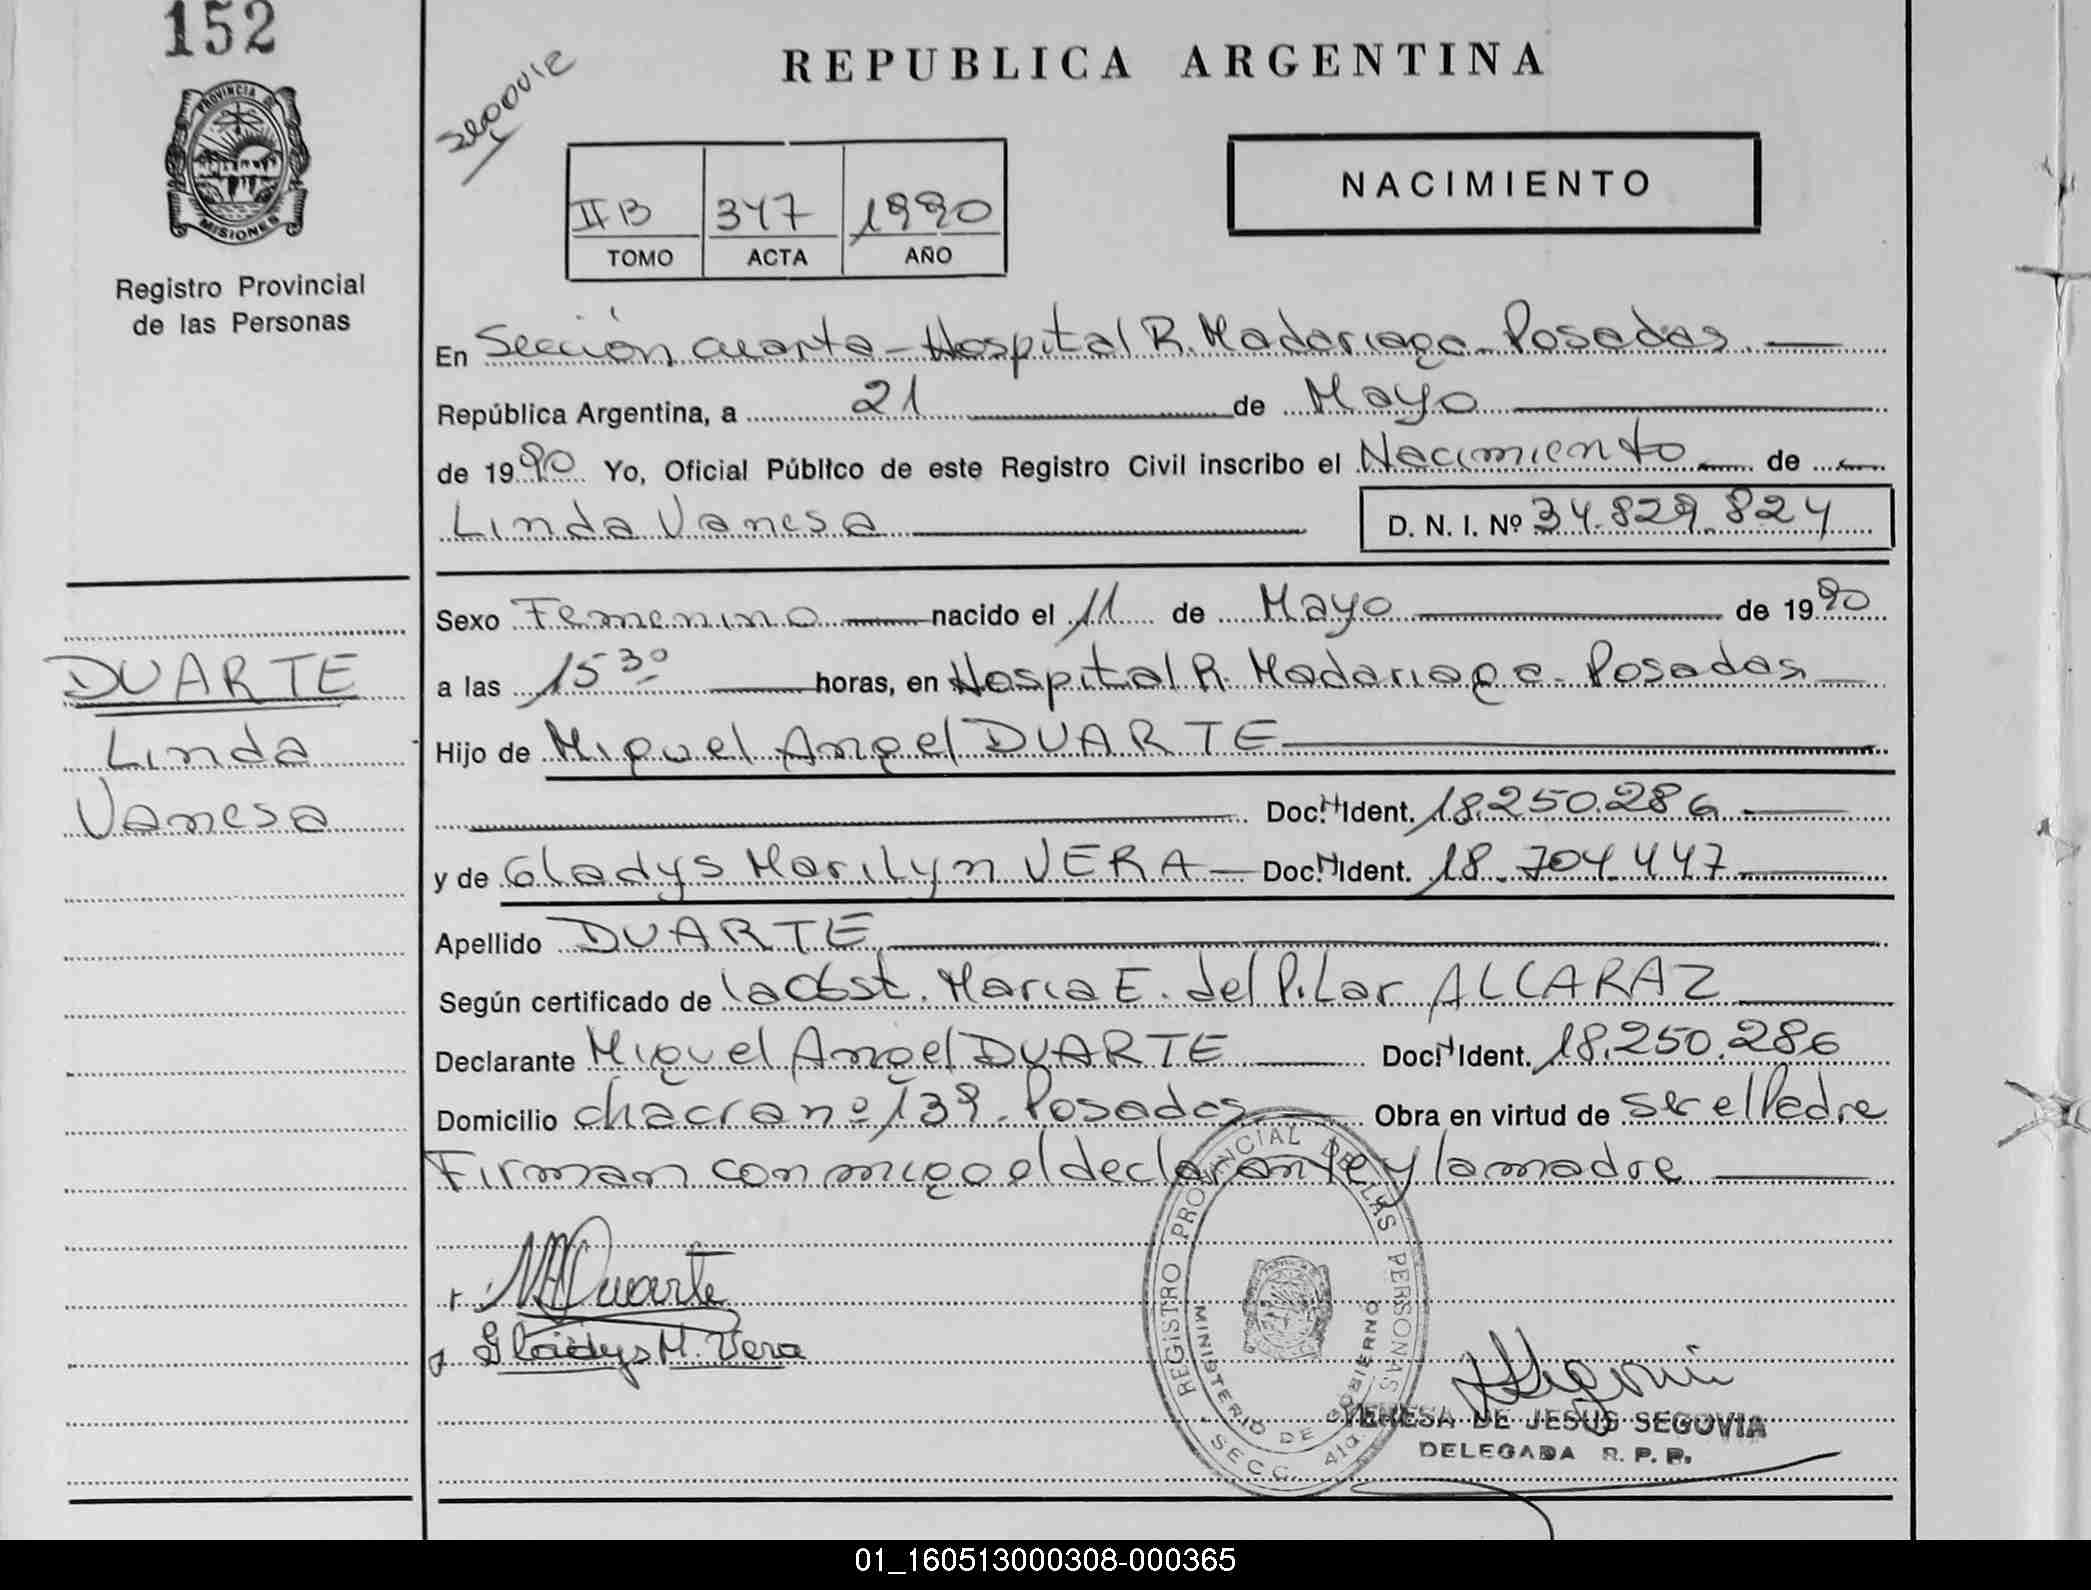 152
PROVINCIA DE
MISIONES
Registro Provincial
de las Personas
REPUBLICA ARGENTINA
II B 347 1990
TOMO ACTA AÑO
NACIMIENTO
En Sección cuarta - Hospital R. Madariaga - Posadas
República Argentina, a 21 de Mayo
de 1990 Yo, Oficial Público de este Registro Civil inscribo el Nacimiento de
Linda Vanesa D. N. I. Nº 34.829.824
Sexo Femenino nacido el 11 de Mayo de 1990
a las 15 30 horas, en Hospital R. Madariaga - Posadas
DUARTE
Linda
Vanesa
Hijo de Miguel Angel DUARTE
Doc. Ident. 18.250.286
y de Gladys Marilyn VERA Doc. Ident. 18.704.447
Apellido DUARTE
Según certificado de la Obst. Maria E. del Pilar ALCARAZ
Declarante Miguel Angel DUARTE Doc. Ident. 18.250.286
Domicilio chacra nº 139 - Posadas Obra en virtud de ser el Padre
Firman conmigo el declarante y la madre
MADuarte
Gladys M. Vera
REGISTRO PROVINCIAL DE LAS PERSONAS
MINISTERIO DE GOBIERNO
SECC. 4ta.
TERESA DE JESUS SEGOVIA
DELEGADA R. P. P.
01_160513000308-000365